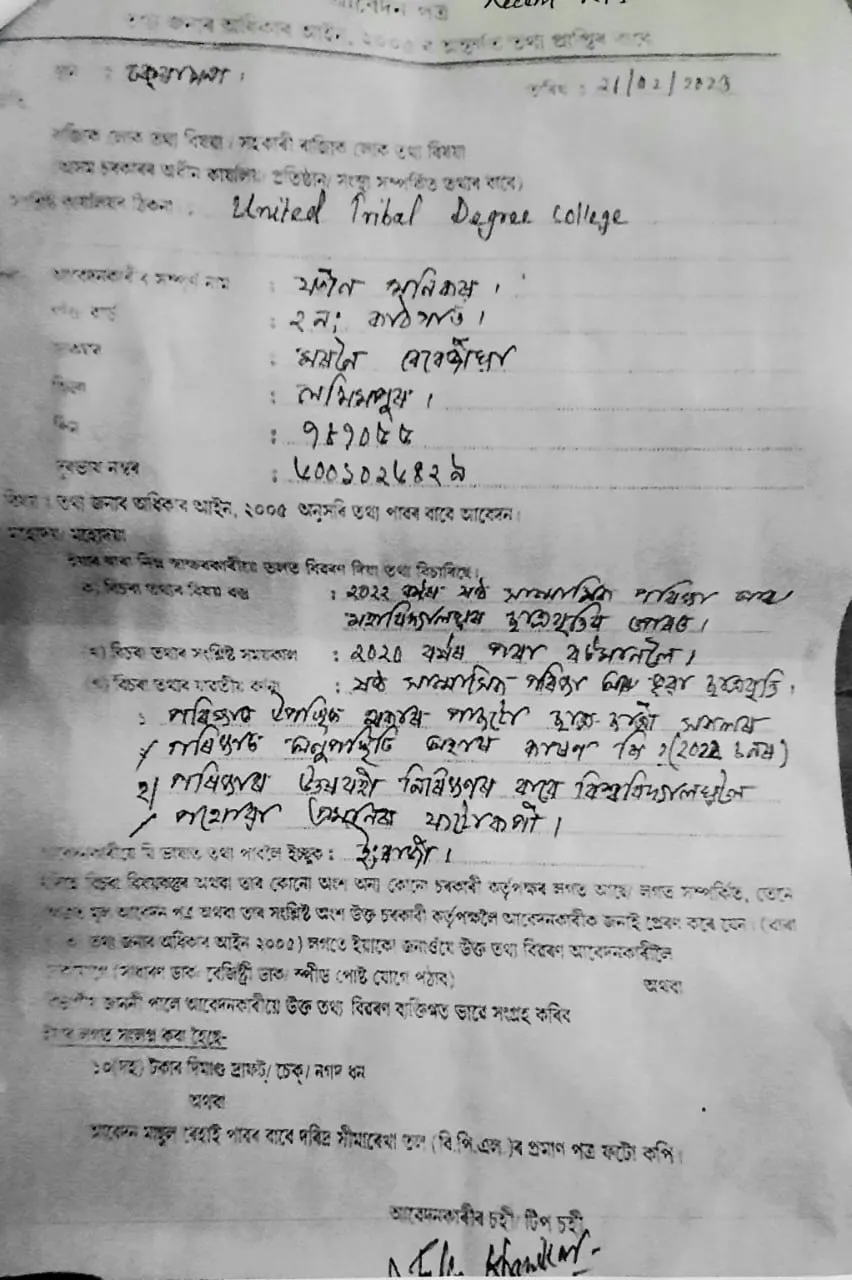 আবেদন পত্ৰ
তথ্য জনাৰ অধিকাৰ আইন, ২০০৫ ৰ অন্তৰ্গত তথ্য প্ৰাপ্তিৰ বাবে
তাৰিখ : 21/02/2023
ৰাজ্যিক লোক তথ্য বিষয়া / সহকাৰী ৰাজ্যিক লোক তথ্য বিষয়া
অসম চৰকাৰৰ অধীন কাৰ্যালয়/ প্ৰতিষ্ঠান/ সংস্থা সম্পৰ্কিত তথ্যৰ বাবে)
কাৰ্যালয়ৰ ঠিকনা : United Tribal Degree College
আবেদনকাৰীৰ সম্পূৰ্ণ নাম : যতীন খনিকৰ ।
: ২ নং কাঠগাওঁ ।
:
জিলা : লখিমপুৰ ।
পিন : ৭৮৭০৫৫
দূৰভাষ নম্বৰ : ৬০০১০২৬৪২৯
বিষয় : তথ্য জনাৰ অধিকাৰ আইন, ২০০৫ অনুসৰি তথ্য পাবৰ বাবে আবেদন।
মহোদয়/ মহোদয়া
ইয়াৰ দ্বাৰা নিম্ন স্বাক্ষৰকাৰীয়ে তলত বিৱৰণ দিয়া তথ্য বিচাৰিছে।
ক) বিচৰা তথ্যৰ বিষয় বস্তু : ২০২২ বৰ্ষৰ ষষ্ঠ ষান্মাসিক পৰিক্ষা আৰু
মহাবিদ্যালয়ৰ ছাত্ৰবৃত্তিৰ
খ) বিচৰা তথ্যৰ সংশ্লিষ্ট সময়কাল : ২০২০ বৰ্ষৰ পৰা বৰ্তমানলৈ ।
গ) বিচৰা তথ্যৰ যাৱতীয় : ষষ্ঠ ষান্মাসিক পৰিক্ষা আৰু ছাত্ৰবৃত্তি ।
১ পৰিক্ষাত উপস্থিত পাছতো ছাত্ৰ-ছাত্ৰী সকলৰ
পৰিক্ষাত অনুপস্থিতি অহাৰ কাৰণ কি ?
২| পৰিক্ষাৰ উত্তৰবহী নিৰিক্ষণৰ বাবে বিশ্ববিদ্যালয়লৈ
পঠোৱা ফটোকপী ।
আবেদনকাৰীয়ে যি ভাষাত তথ্য পাবলৈ ইচ্ছুক : ইংৰাজী ।
বিচৰা বিষয়বস্তুৰ অথবা তাৰ কোনো অংশ অন্য কোনো চৰকাৰী কৰ্তৃপক্ষৰ লগত আছে/ লগত সম্পৰ্কিত, তেনে
মূল আবেদন পত্ৰ অথবা তাৰ সংশ্লিষ্ট অংশ উক্ত চৰকাৰী কৰ্তৃপক্ষলৈ আবেদনকাৰীক জনাই প্ৰেৰণ কৰে যেন। (ধাৰা
তথ্য জনাৰ অধিকাৰ আইন ২০০৫) লগতে ইয়াকো জনাওঁযে উক্ত তথ্য বিৱৰণ আবেদনকাৰীলৈ
(সাধাৰণ ডাক/ ৰেজিষ্ট্ৰী ডাক/ স্পীড পোষ্ট যোগে পঠাব) অথবা
জাননী পালে আবেদনকাৰীয়ে উক্ত তথ্য বিৱৰণ ব্যক্তিগত ভাৱে সংগ্ৰহ কৰিব
ইয়াৰ লগত সংলগ্ন কৰা হৈছে-
১০(দহ) টকাৰ দিমাণ্ড ড্ৰাফট/ চেক/ নগদ ধন
অথবা
আবেদন মাচুল ৰেহাই পাবৰ বাবে দৰিদ্ৰ সীমাৰেখা তল (বি.পি.এল.)ৰ প্ৰমাণ পত্ৰ ফটো কপি।
আবেদনকাৰীৰ চহী/ টিপ চহী